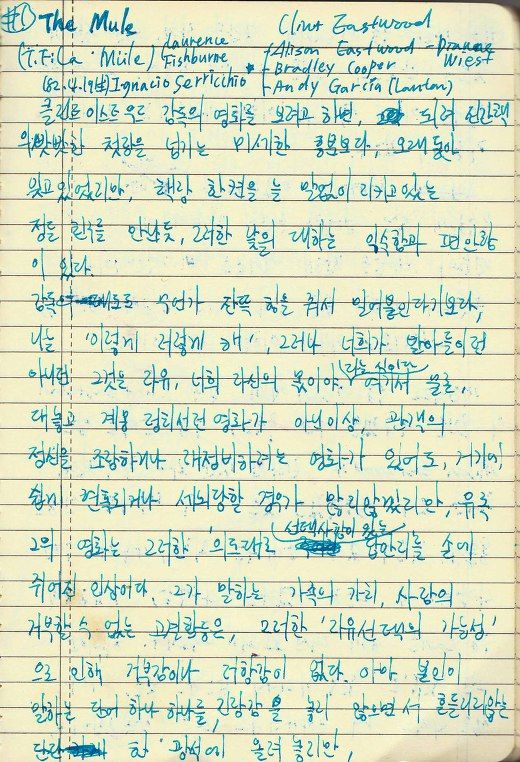 #① The Mule Clint Eastwood
Laurence + Alison Eastwood - Dianne
Fishburne - Bradley Cooper Wiest
('82. 4. 19生) Ignacio Serricchio - Andy Garcia (Laton)
클린트 이스트우드 감독의 영화를 보려고 하면, 되려
첫장을 넘기는 미세한 흥분보다, 오래동안
잊고 있었지만, 책장 한켠을 늘 말없이 지키고 있는
정든 친구를 만난듯, 그러한 낯을 대하는 익숙함과 편안함
이 있다.
감독 무언가 잔뜩 힘을 줘서 밀어붙인다기보다,
나는 '이렇게 저렇게 해', 그러나 너희가 받아들이던
아니던 그것은 자유, 너희 자신의 몫이야. 라는 식이다 여기서 물론,
대놓고 계몽 영화가 아닌이상 관객의
정신을 조장하거나 재정비하려는 영화가 있어도, 거기에
쉽게 현혹되거나 세뇌당할 경우가 많지않겠지만, 유독
그의 영화는 그러한 의도대로 선택사항이 있는 손에
쥐어진 인상이다. 그가 말하는 가족의 가치, 사랑의
거부할 수 없는 그러한 '자유선택의 가능성'
으로 인해 거부감이나 저항감이 없다. 아마 본인이
말하는 단어 하나 하나를, 긴장감을 놓지 않으면서 흔들리지않는
단단 한 올려 놓지만,